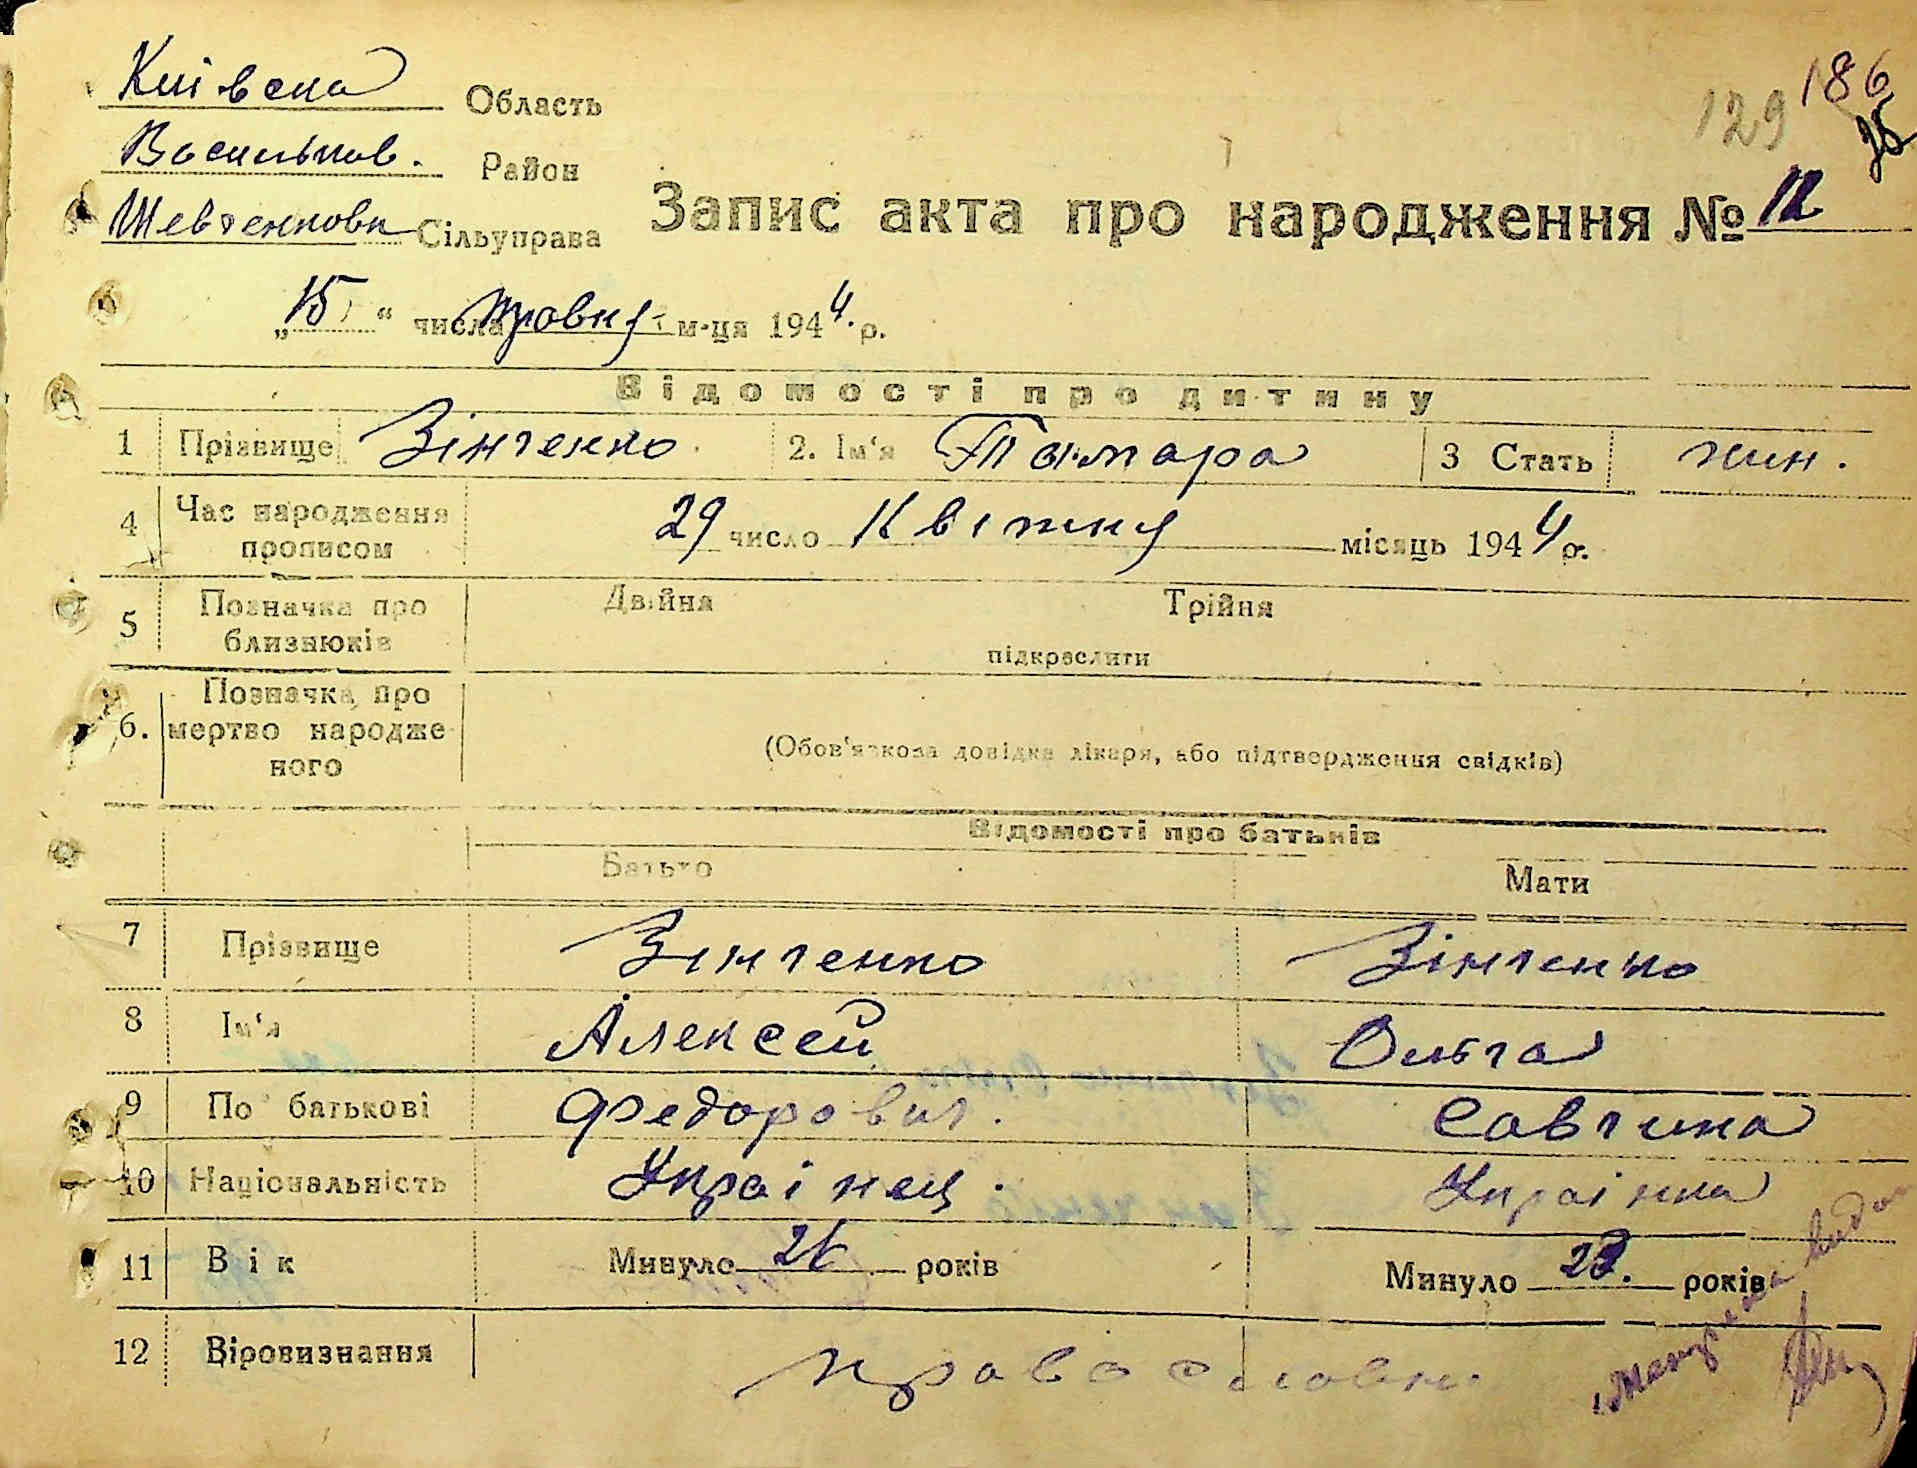 Київска Область
Васильков. Район
Шевченковк Сільуправа
129 186
25
Запис акта про народження № 12
„15“ числа травня м-ця 1944. р.
Відомості про дитину
1 Прізвище Зінченко 2. Ім'я Тамара 3 Стать жин.
4 Час народження прописом 29 число Квітня місяць 1944 р.
5 Позначка про близнюків Двійня Трійня
підкреслити
6. Позначка про мертво народженого (Обов'язкова довідка лікаря, або підтвердження свідків)
Відомості про батьків
Батько Мати
7 Прізвище Зінченко Зінченко
8 Ім'я Алексей Ольга
9 По батькові Федорович. Савчина
10 Національність Українец. Українка
11 Вік Минуло років Минуло 23. років
12 Віровизнання православн.